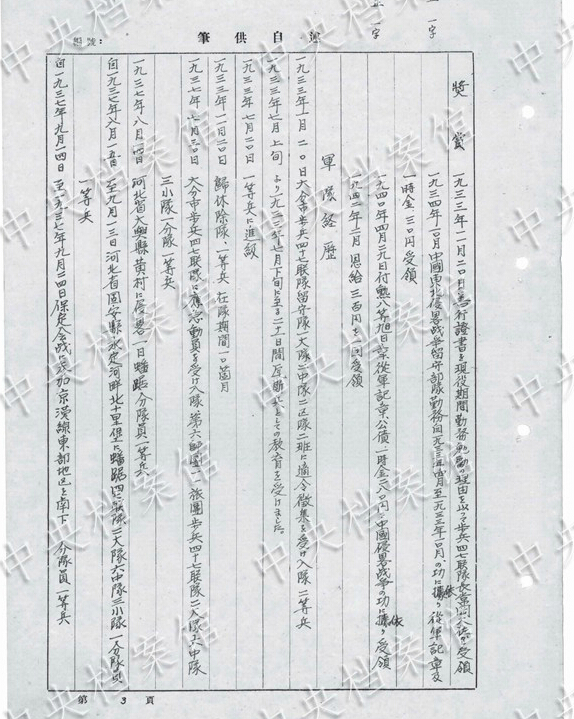 述自供筆
編號：
一字
一字
獎賞
一九三三年一一月二〇日善行證書を現役期間勤務勉勵理由を以て歩兵四七联隊長 受領
一九三四年 月中國東北侵畧战争留守部隊勤務自一九三 年四月至一九三三年一〇月の功に據り依従軍記章及
一時金三〇円受領
一九四〇年四月二九日付勲八等旭日章従軍記章公債一時金二八〇円中國侵畧战争の功に據り依受領
一九四二年三月恩給三百円を一回受領
軍隊経歴
一九三三年一月二〇日大分市歩兵四七联隊留守隊一大隊二中隊二区隊二班に適令徴集を受け入隊二等兵
一九三三年七月上旬より一九三三年七月下旬に至る二十日間 としての教育を受けました。
一九三三年七月二〇日一等兵に進級
一九三三年一一月二〇日歸休除隊、一等兵 在隊期間一〇箇月
一九三七年七月三〇日大分市歩兵四七联隊に應召動員を受け入隊第六師團一一旅團歩兵四十七联隊二大隊六中隊
三小隊一分隊一等兵
一九三七年八月一四日河北省大興縣黄村に侵畧一日蟠踞分隊員一等兵
自一九三七年八月一五日至九月一三日河北省固安縣永定河畔北十里堡に蟠踞四七联隊二大隊六中隊三小隊一分隊員
一等兵
自一九三七年九月一四日至一九三七年九月二四日保定会战に参加京漢線東部地区を南下 分隊員一等兵
第3頁
中央档案馆